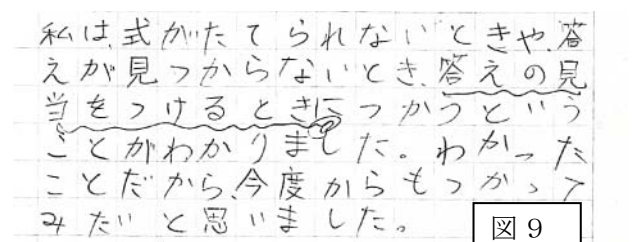 私は、式がたてられないときや、答
えが見つからないとき、答えの見
当をつけるときにつかうという
ことがわかりました。わかった
ことだから、今度からもつかって
みたいと思いました。
図9